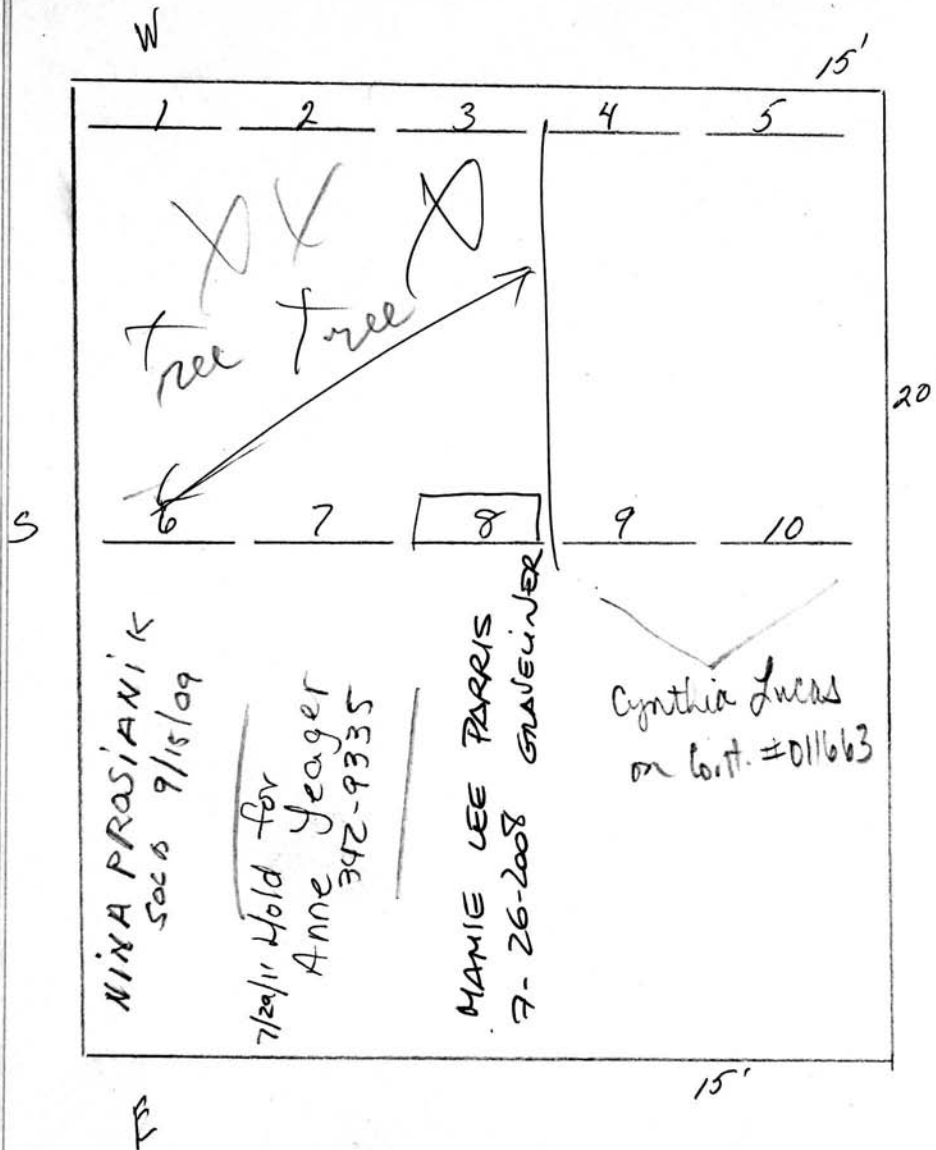 W
15'
1 2 3 4 5
X X X
Tree Tree
20
S
6 7 8 9 10
NINA PROSIANIK
9/15/09
7/29/11 Hold for
Anne Yeager
342-9335
MAMIE LEE PARRIS
7-26-2008 GRAVELINER
Cynthia Lucas
on Cert. #011663
15'
E